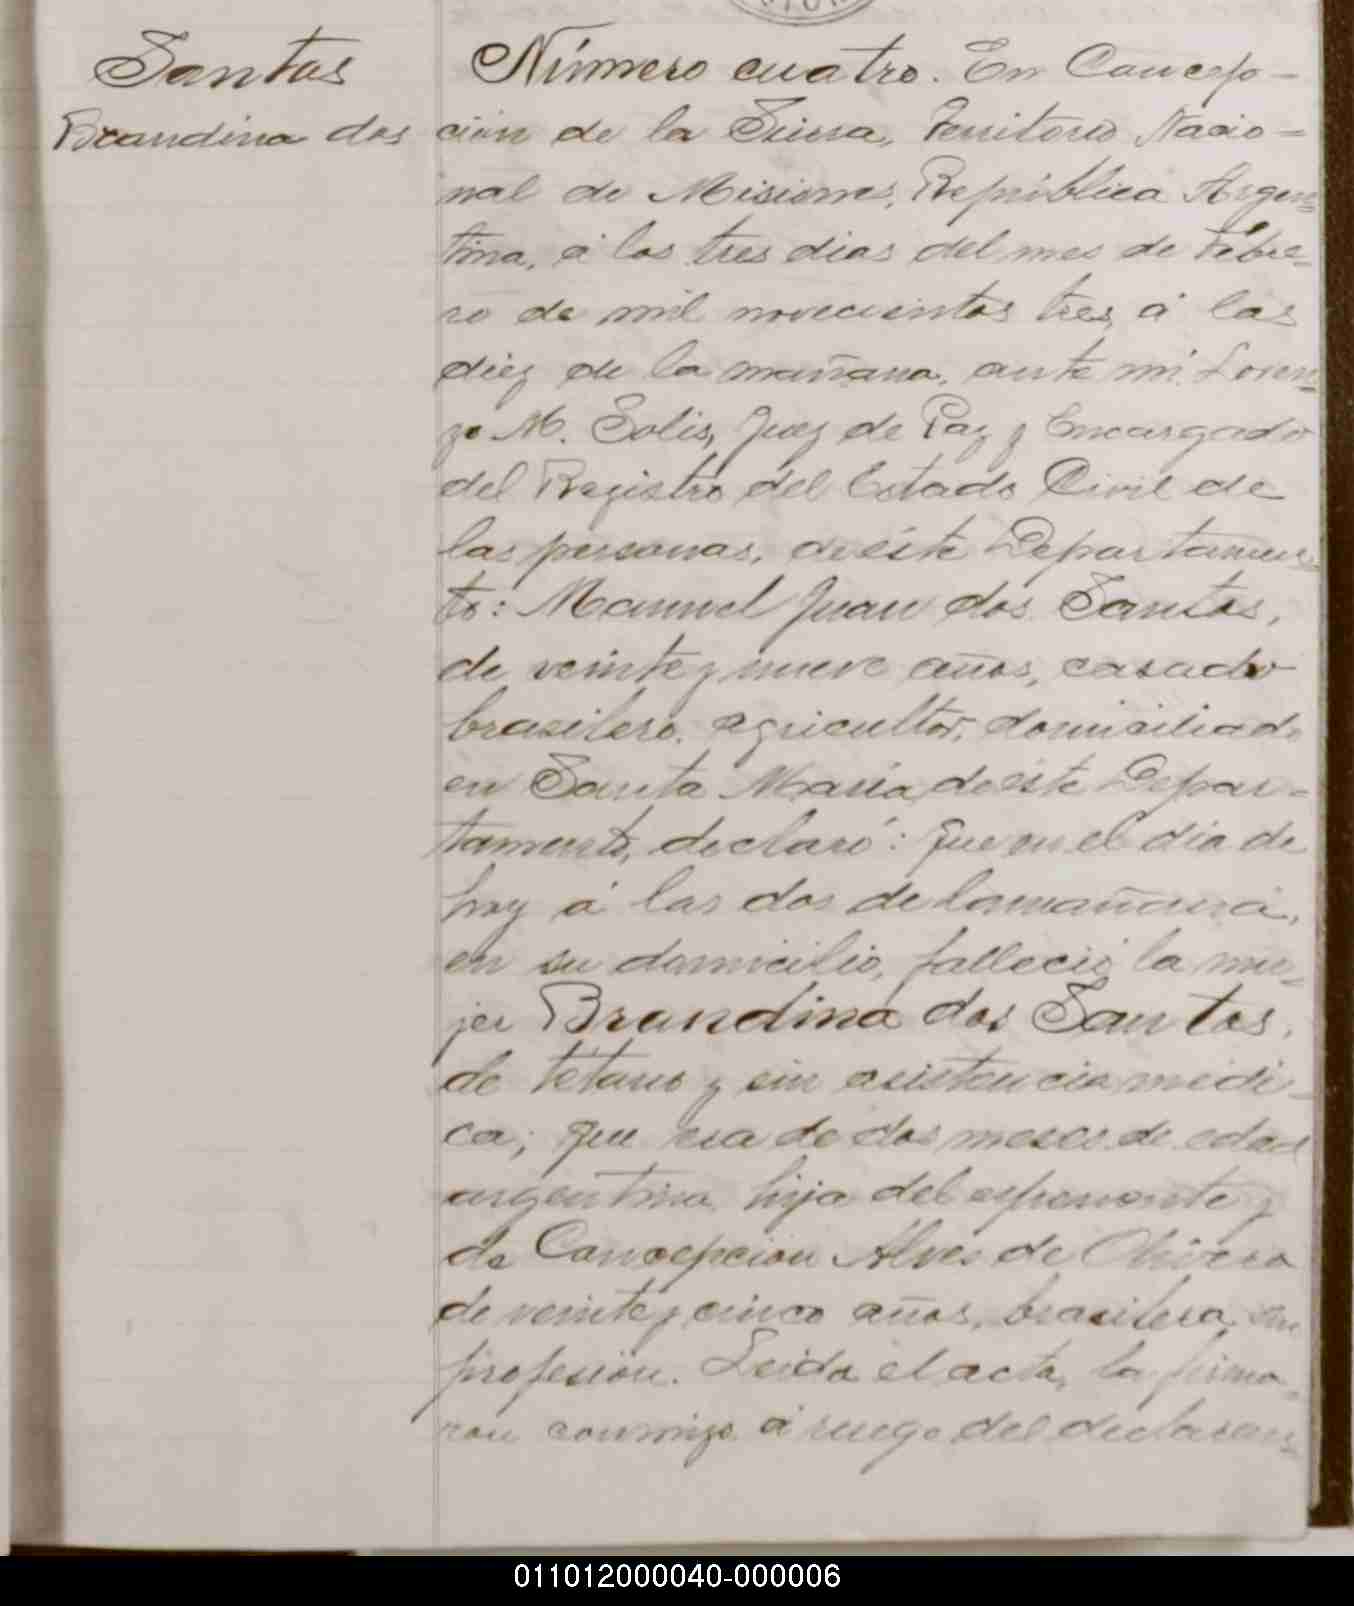 Santos
Brandina dos
Número cuatro. En Concep-
ción de la Sierra, Territorio Nacio=
nal de Misiones, República Argen=
tina, á los tres dias del mes de Febre=
ro de mil novecientos tres, á las
diez de la mañana, ante mi, Loren=
zo M. Solis, Juez de Paz y Encargado
del Registro del Estado Civil de
las personas, de éste Departamen=
to: Manuel Juan dos Santos,
de veinte y nueve años, casado
brasilero, agricultor, domiciliado
en Santa María, de éste Depar=
tamento, declaró: Que en el dia de
hoy á las dos de la mañana,
en su domicilio, falleció la mu=
jer Brandina dos Santos,
de tétano y sin asistencia médi-
ca; Que era de dos meses de edad
argentina, hija del esponente y
de Concepcion Alves de Olivera
de veinte y cinco años, brasilera, sin
profesion. Leida el acta, la firma=
ron conmigo á ruego del declaran=
011012000040-000006